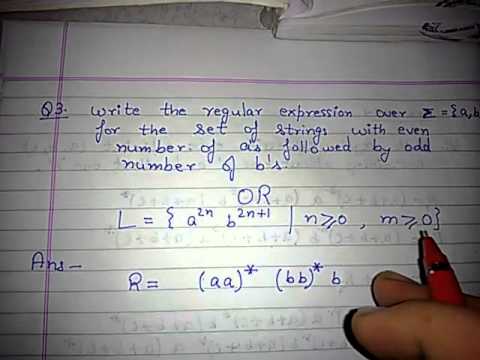 Q3. Write the regular expression over Σ = {a,b
for the set of strings with even
number of a's followed by odd
number of b's.
OR
L = { a^2n b^2n+1 | n≥0 , m≥0}
Ans-
R = (aa)* (bb)* b